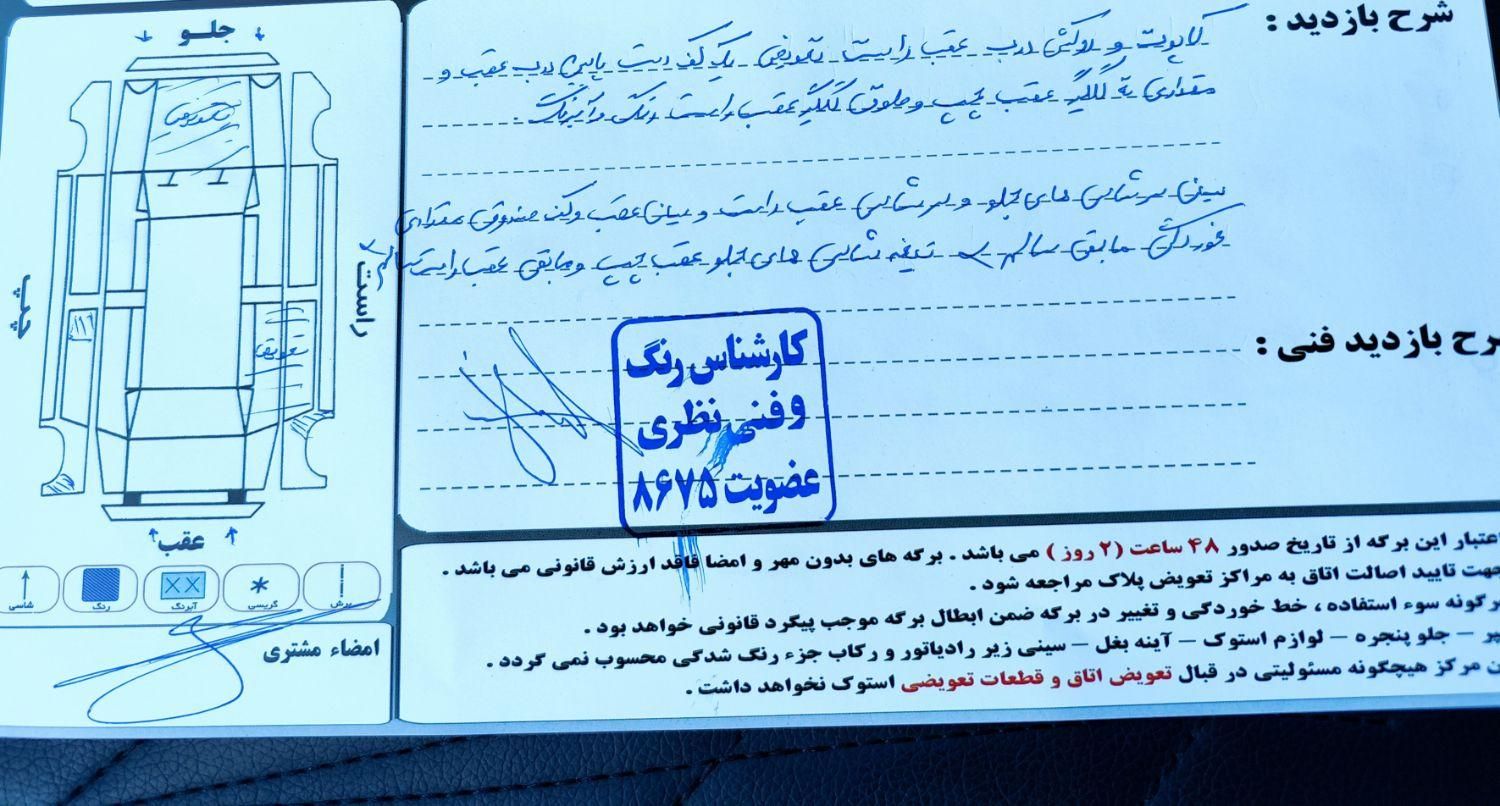 شرح بازدید :
کاپوت و روکش درب عقب راست تعویض یک کف دست پایین درب عقب و
مقداری تة گلگیر عقب چپ و جلوی گلگیر عقب راست رنگ و آبرنگ .
سینی سرشاسی های جلو و سرشاسی عقب راست و سینی عقب و کف صندوق مقداری
خوردگی مابقی سالم تیغه شاسی های جلو عقب چپ و مابقی عقب راست سالم
رح بازدید فنی :
کارشناس رنگ
و فنی نظری
عضویت ۸۶۷۵
جلــو
تعویض
چپ
راست
تعویض
عقب
شاسی
رنگ
آبرنگ
گریسی
برش
امضاء مشتری
عتبار این برگه از تاریخ صدور ۴۸ ساعت (۲ روز ) می باشد . برگه های بدون مهر و امضا فاقد ارزش قانونی می باشد .
جهت تایید اصالت اتاق به مراکز تعویض پلاک مراجعه شود .
رگونه سوء استفاده ، خط خوردگی و تغییر در برگه ضمن ابطال برگه موجب پیگرد قانونی خواهد بود .
پر – جلو پنجره – لوازم استوک – آینه بغل – سینی زیر رادیاتور و رکاب جزء رنگ شدگی محسوب نمی گردد .
ن مرکز هیچگونه مسئولیتی در قبال تعویض اتاق و قطعات تعویضی استوک نخواهد داشت .